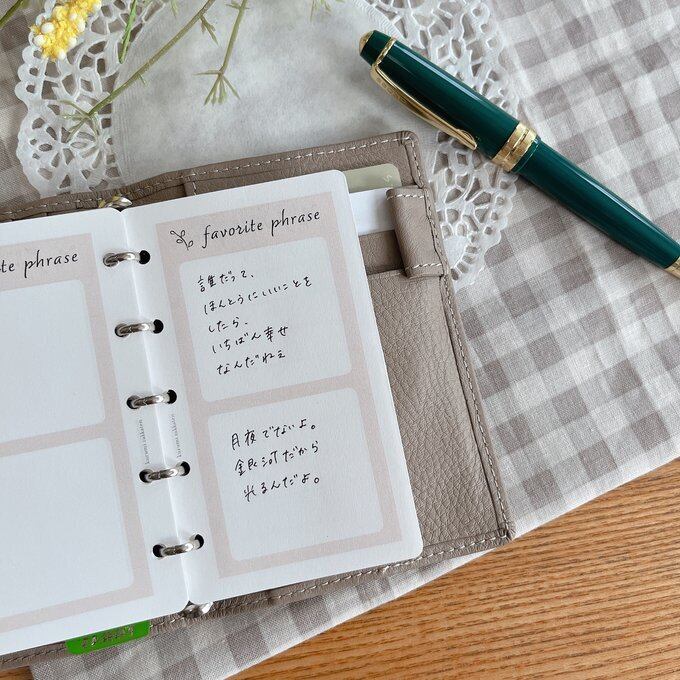 te phrase
favorite phrase
誰だって、
ほんとうにいいことを
したら、
いちばん幸せ
なんだねぇ
月夜でないよ。
銀河だから
光るんだよ。